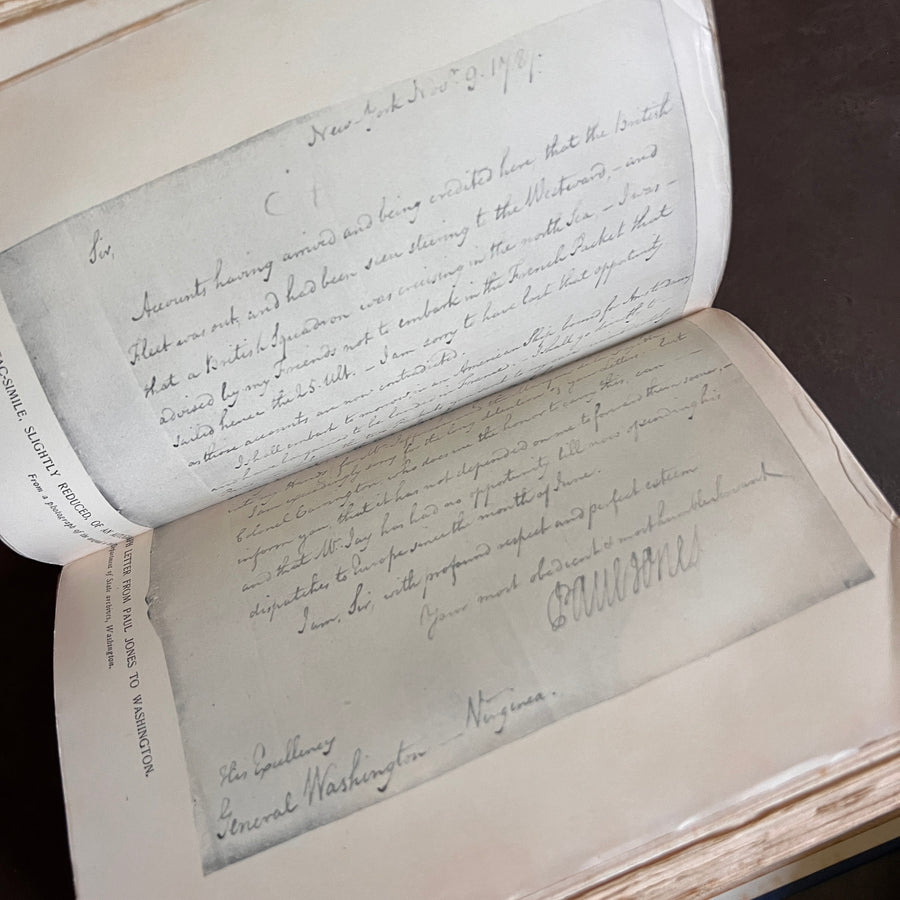 New-York Novr. 9. 1787.
Sir,
Accounts having arrived and being credited here, that the British
Fleet was out, and had been seen steering to the Westward, - and
that a British Squadron was cruising in the north Sea, - I was -
advised by my Friends not to embark in the French Packet that
sailed hence the 25. Ult. - I am sorry to have lost that opportunity
as those accounts are now contradicted.
I shall embark to morrow in an American Ship bound for Amsterdam
Colonel Carrington, who does me the honor to carry this, can
inform you, that it has not depended on me to forward them sooner, -
and that Mr. Jay has had no opportunity till now of sending his
dispatches to Europe since the month of June.
I am, Sir, with profound respect and perfect esteem
Your most obedient & most humble servant
Paul Jones
His Excellency
General Washington - Virginia.
FAC-SIMILE, SLIGHTLY REDUCED, OF AN LETTER FROM PAUL JONES TO WASHINGTON.
From a photograph of Department of State archives, Washington.